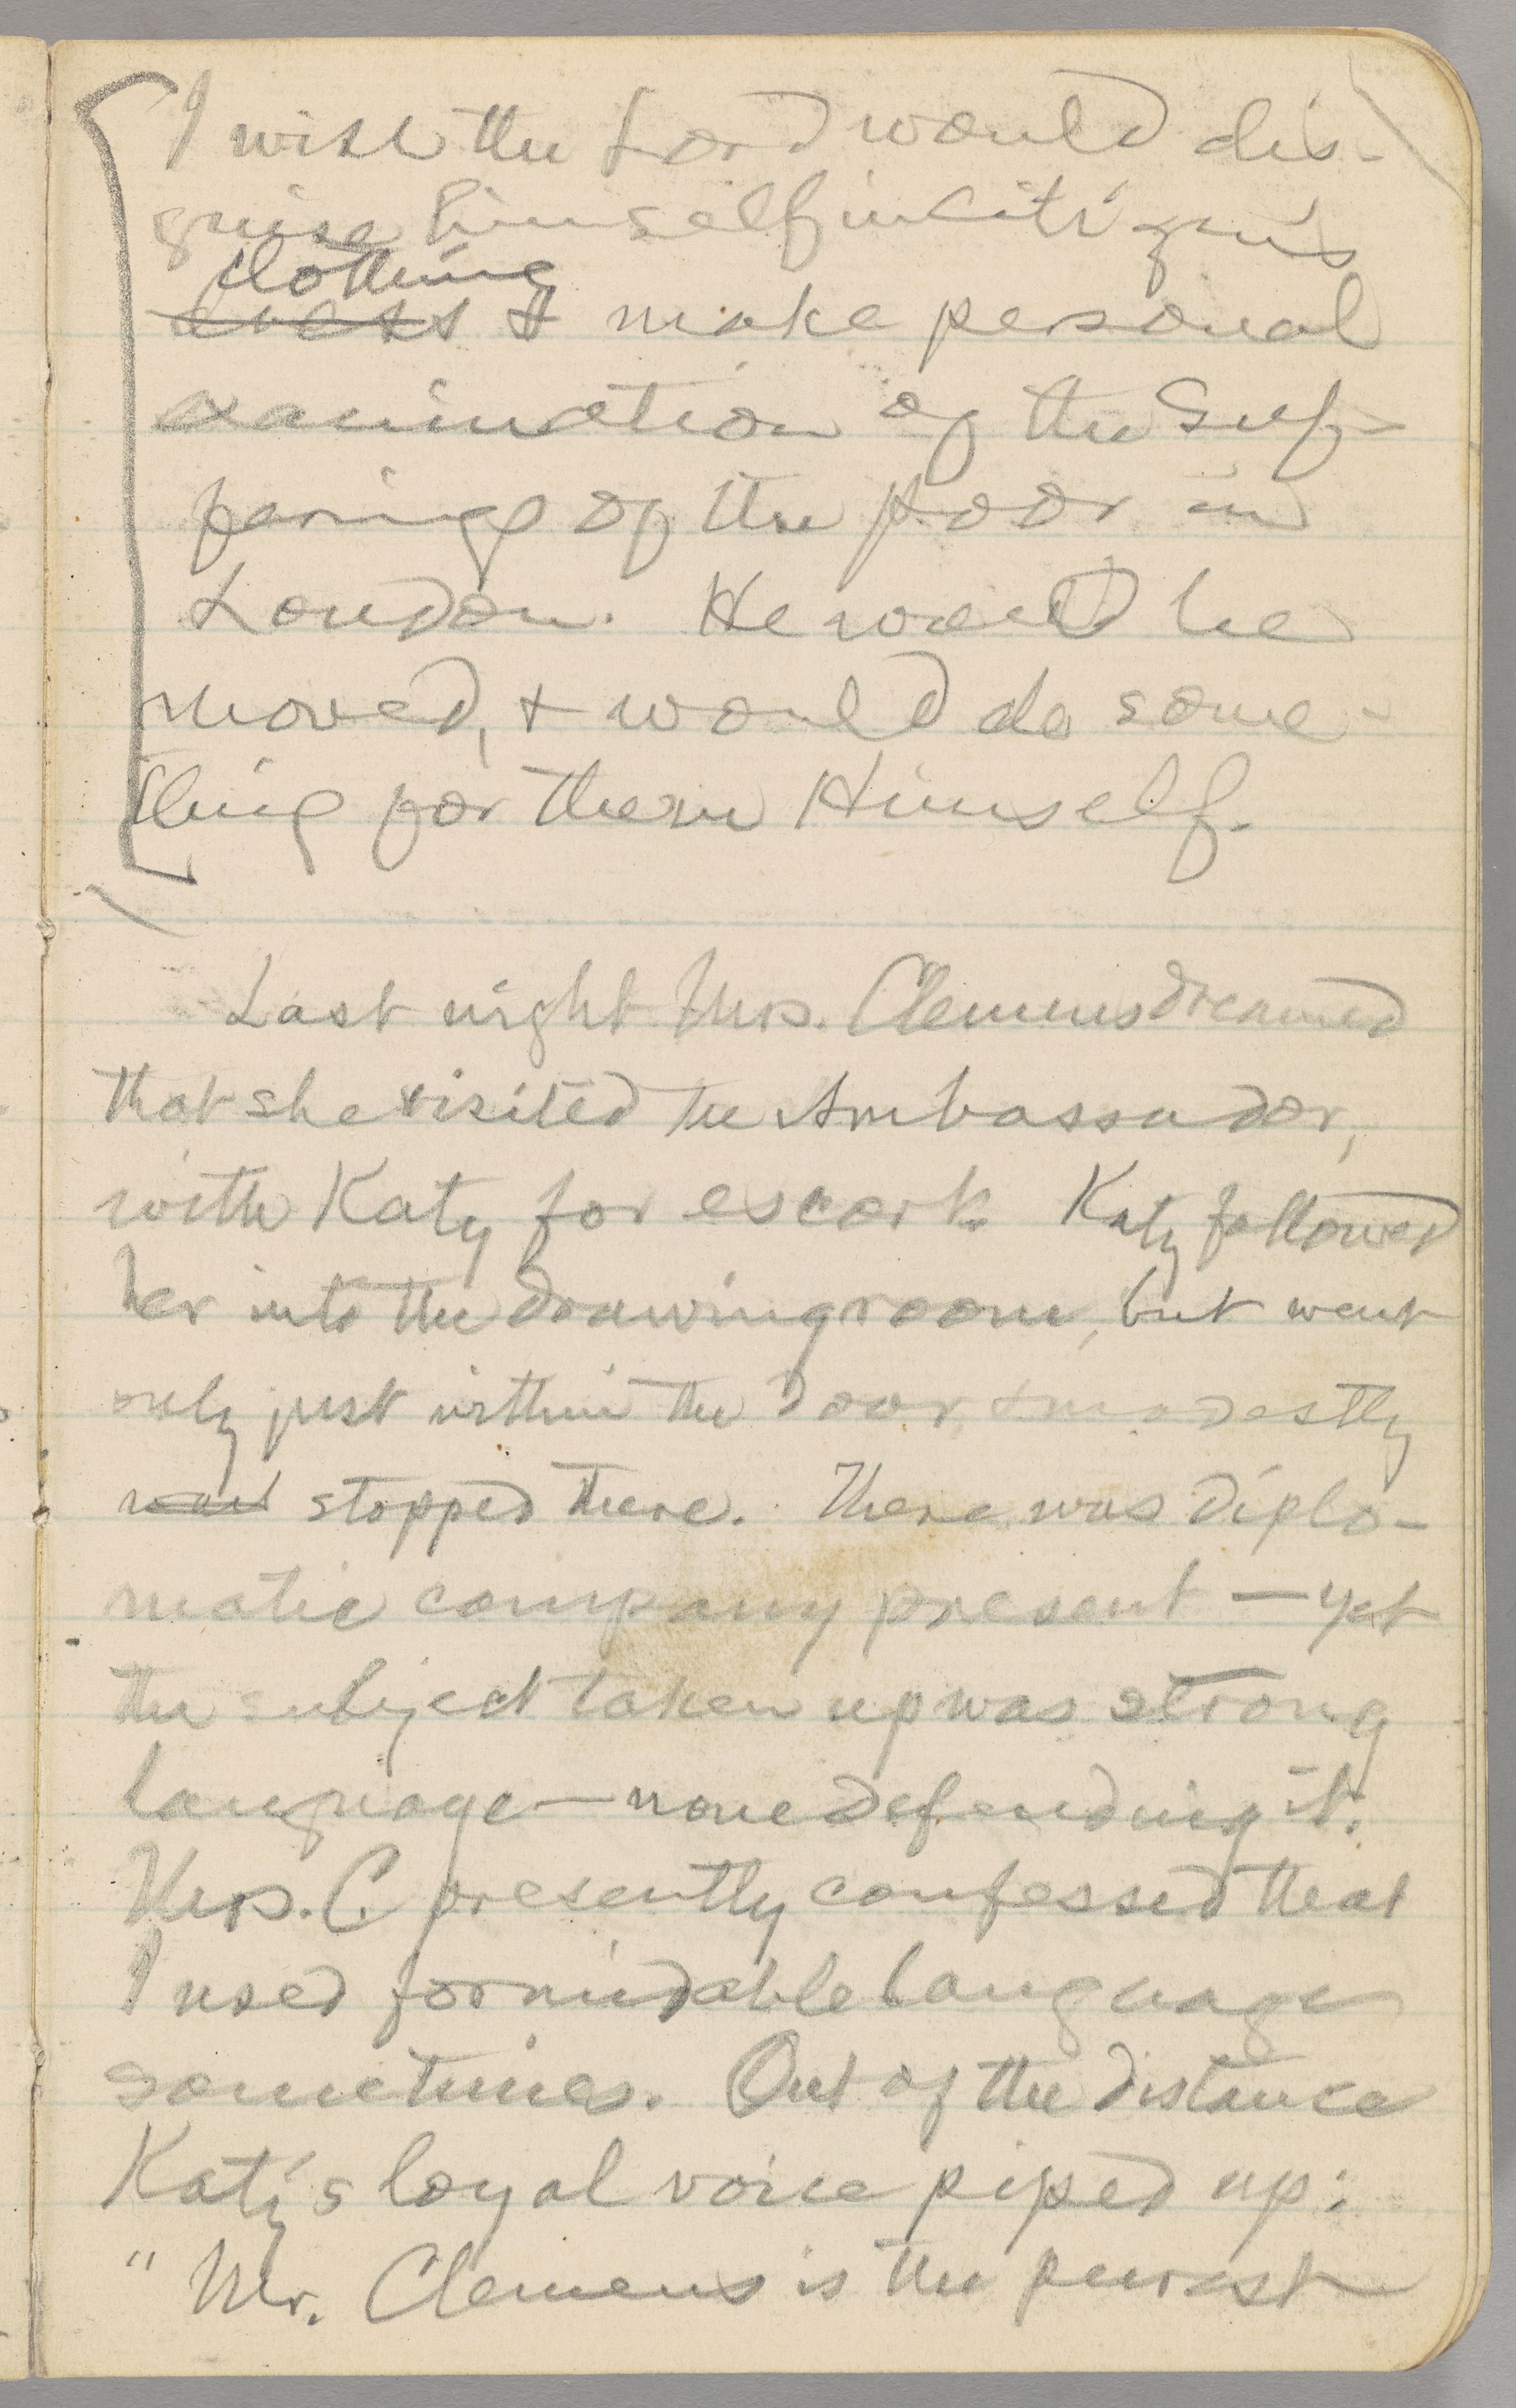 I wish the Lord would dis-
guise himself in citizen's
clothing
dress & make personal
examination of the suf-
ferings of the poor in
London. He would be
moved, & would do some-
thing for them Himself.
Last night Mrs. Clemens dreamed
that she visited the Ambassador,
with Katy for escort. Katy followed
her into the drawingroom, but went
only just within the door & modestly
stopped there. There was diplo-
matic company present — yet
the subject taken up was strong
language — none defending it.
Mrs. C. presently confessed that
I used formidable language
sometimes. Out of the distance
Katy's loyal voice piped up:
"Mr. Clemens is the purest